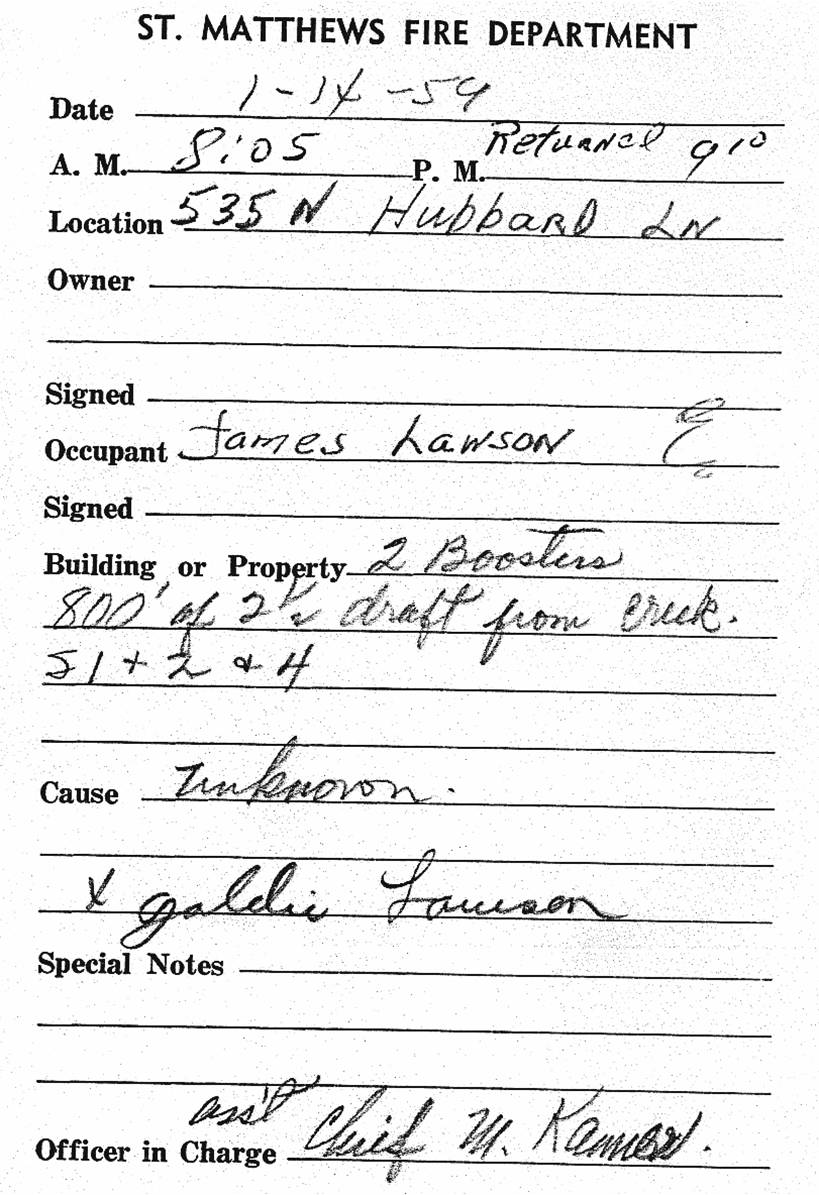 ST. MATTHEWS FIRE DEPARTMENT
Date 1-14-59
A. M. 8:05 P. M. Returned 9 10
Location 535 N Hubbard LN
Owner
Signed
Occupant James Lawson
Signed
Building or Property 2 Boosters
800' of 2½ draft from creek.
51 + 2 & 4
Cause unknown.
x Goldie Lawson
Special Notes
Officer in Charge ass't Chief M.